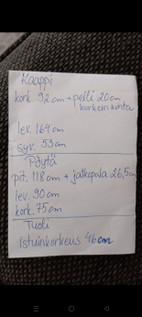 Kaappi
kork. 92cm + pelti 20cm
korkein kohta
lev. 164cm
syv. 53cm
Pöytä
pit. 118cm + jatkopala 26,5cm
lev. 90cm
kork. 75cm
Tuoli
Istuinkorkeus 46cm